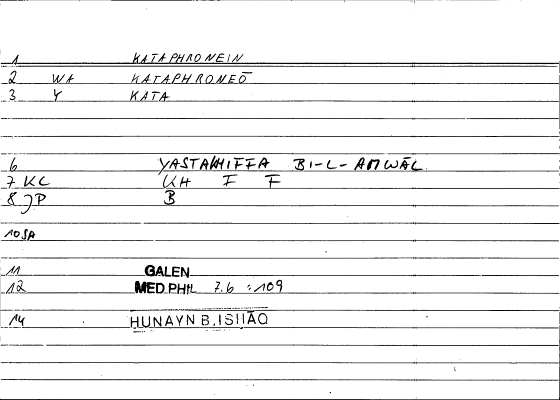 1 KATAPHRONEIN
2 WA KATAPHRONEŌ
3 Y KATA
6 YASTAKHIFFA BI-L-AMWĀL
7 KC KH F F
8 JP B
10 SA
11 GALEN
12 MED.PHIL 7.6 :109
14 HUNAYN B.ISḤĀQ